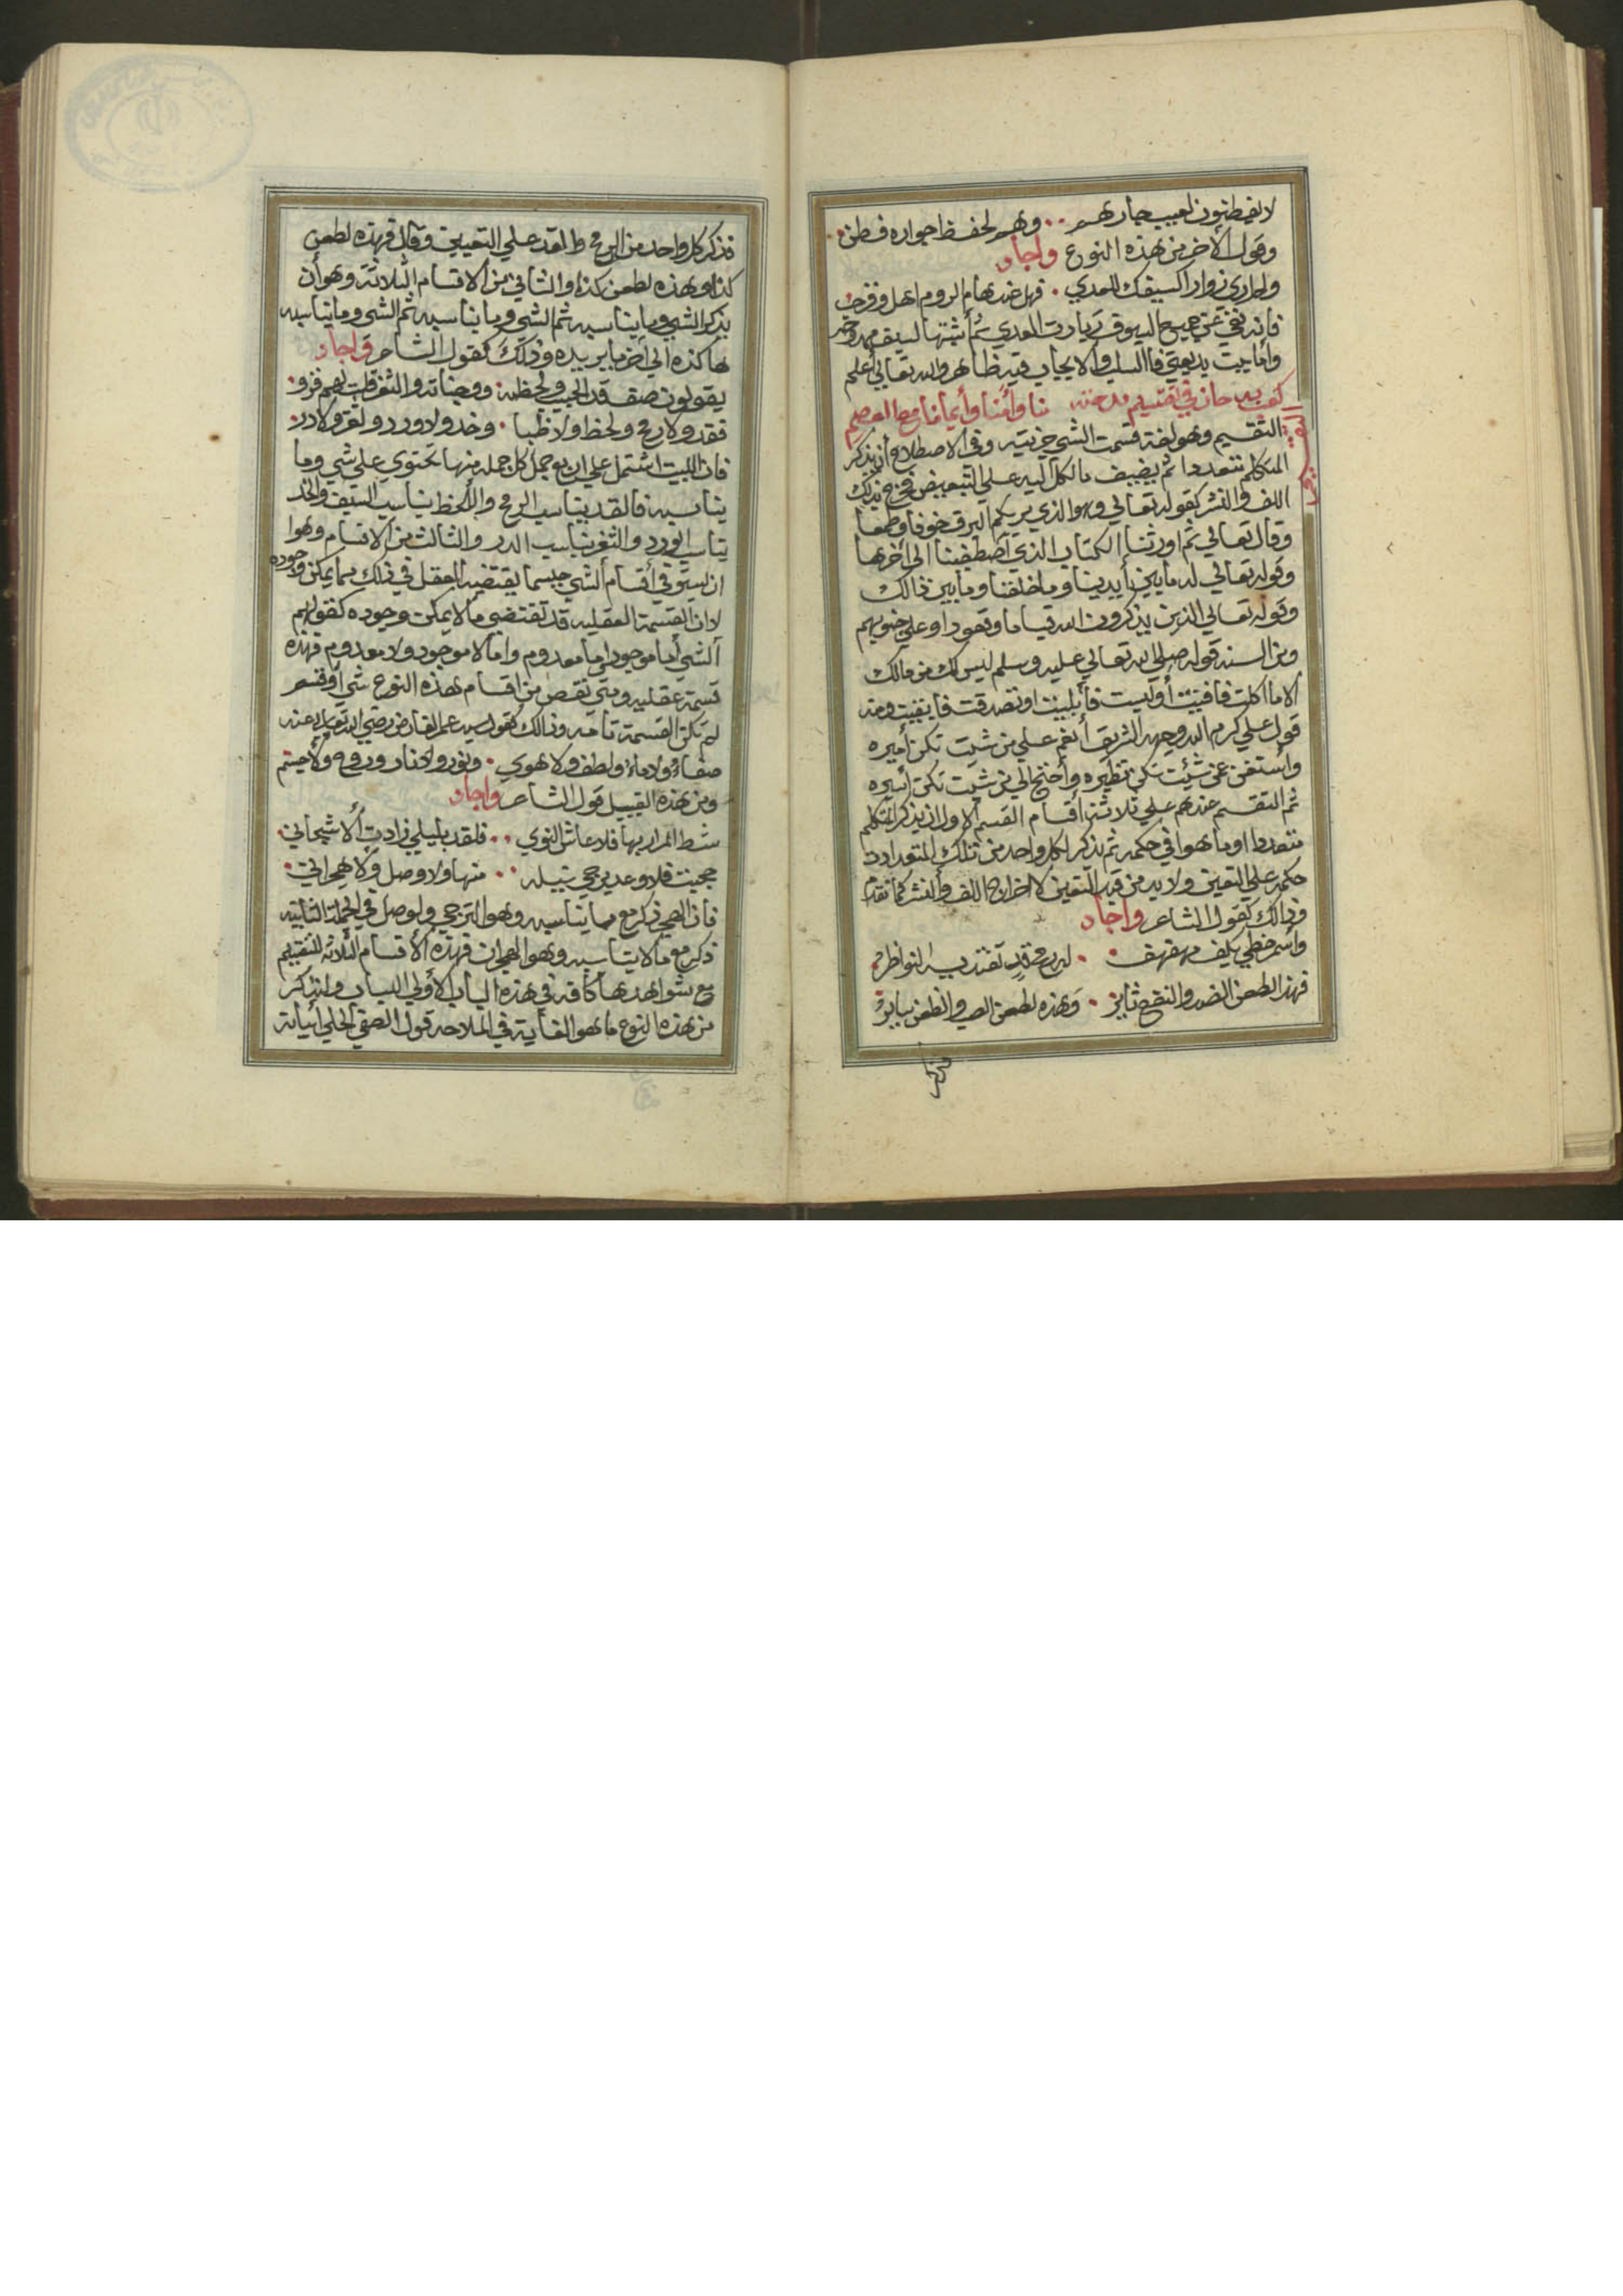 لا يفطنون لعيب جارهم وهم لحفظ جواره فطن
وقول الأخر من هذه النوع واجاد
ولم ارى زوارا كسيفك للعدي فهل عند هام الروم اهل وفرخ
فانه نفي عن جميع السيوف زيارت العدي ثم أثبتها لسيف ممدوحه
وأما بيت بديعتي فاالسلب والايجاب فيه ظاهر والله تعالي أعلم
التقسيم وهو لغة قسمت الشي جزيته وفي الاصطلاح أن يذكر
المتكلم متعددا ثم يضيف ما لكل اليه علي التعيين فخرج بذلك
اللف والنشر كقوله تعالي وهو الذي يريكم البرق خوفا وطمعا
وقال تعالي ثم اورثنا الكتاب الذي اصطفينا الى أخرها
وقوله تعالي له ما بين أيدينا وما خلفنا وما بين ذالك
وقوله تعالي الذين يذكرون الله قياما وقعودا وعلي جنوبهم
ومن السنه قوله صلي الله تعالي عليه وسلم ليس لك من مالك
الا ما اكلت فافنيت أو لبست فأبليت او تصدقت فابقيت ومنه
قول علي كرم الله وجهه الشريف أنعم علي من شيت تكن أميره
وأستغن عن شئيت تكن نظيره وأحتج الي من شيت تكن أسيره
ثم التقسم عندهم علي ثلاثة أقسام القسم الاول ان يذكر المتكلم
متعددا اوما هوا في حكمه ثم يذكر لكل واحد من تلك المتعدادت
حكمه علي التعين ولا بد من قيد التعين لاخراج اللف والنشر كما تقدم
وذالك كقول الشاعر واجاد
وأسمر خطي
فهذا لطعن الضد والنقع ثاير وهذه لطعن الصب
فذكر كل واحد من الرمح والقد علي التعيين وقال فهذه لطعن
كذا وهذه لطعن كذا والثاني من الاقسام الثلاثة وهو أن
يذكر الشي وما يناسبه ثم الشي وما يناسبه ثم الشي وما يناسبه
هاكذه الي أخر ما يريده وذلك كقول الشاعر واجاد
يقولون صف قد الحبيب ولحظه ووجناته والثغر قلت لهم فزو
فقد ولا رمح ولحظ ولا ظبا وخد ولا ورد ولثغر ولا در
فان البيت اشتمل علي اربع جمل كل جمله منها تحتوي علي شي وما
يناسبه فالقد يناسب الرمح واللحظ يناسب السيف والخد
يناسب الورد والثغر يناسب الدر والثالث من الاقسام وهوا
ان يستوفي أقسام الشي حسبما يقتضيه العقل في ذلك مما يمكن وجوده
لان القسمة العقليه قد تقتضي ما لا يمكن وجوده كقولهم
الشي أما موجود وأما معدوم وأما لا موجود ولا معدوم فهذه
قسمة عقليه ومتي نقص من اقسام هذه النوع شي أو قسم
لم تكن القسمة تامه وذالك كقول سيد عمر الفارض رضي الله تعالي عنه
صفاء ولا ماء ولطف ولا هوي ونور ولا نار وروح ولا جسم
ومن هذه القبيل قول الشاعر واجاد
شط المزار بها فلا عاش النوي فلقد بليلي زادت أشجاني
حجبت فلا وعد يرجي نيله منها ولا وصل ولا هجراني
فان الهجر ذكر مع مما يناسبه وهو الترجي ولوصل في الجملة الثانيه
ذكر مع ما لا يناسبه وهو الهجران فهذه الأقسام الثلاثه للتقسيم
مع شواهدها كافه في هذه الباب لأولي اللباب ولنذكر
من هذه النوع ما هو الغاية في الملاحه قول الصفي الحلي